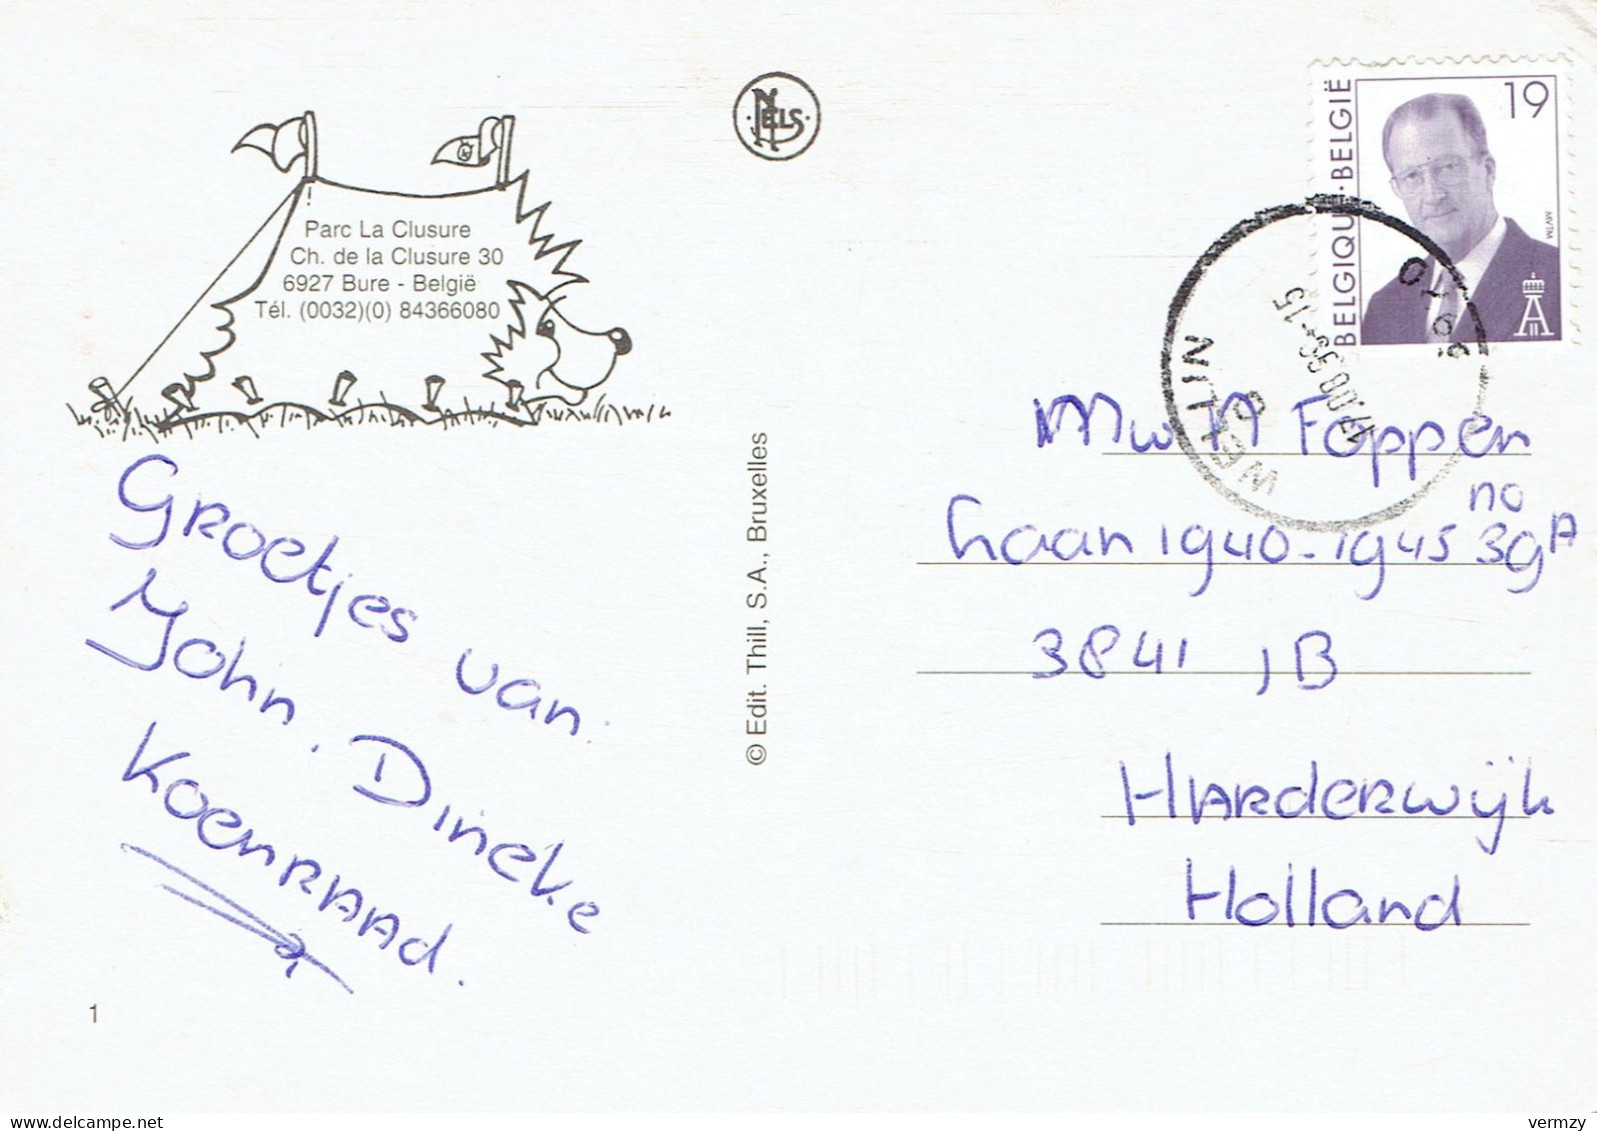 NELS
Parc La Clusure
Ch. de la Clusure 30
6927 Bure - België
Tél. (0032)(0) 84366080
Groetjes van:
John, Dineke
Koenraad.
1
© Edit. Thill, S.A., Bruxelles
BELGIQUE·BELGIË
19
MVTM
WELLIN
Mw Foppen
no
Laan 1940-1945 39A
3841 JB
Harderwijk
Holland
delcampe.net
vermzy